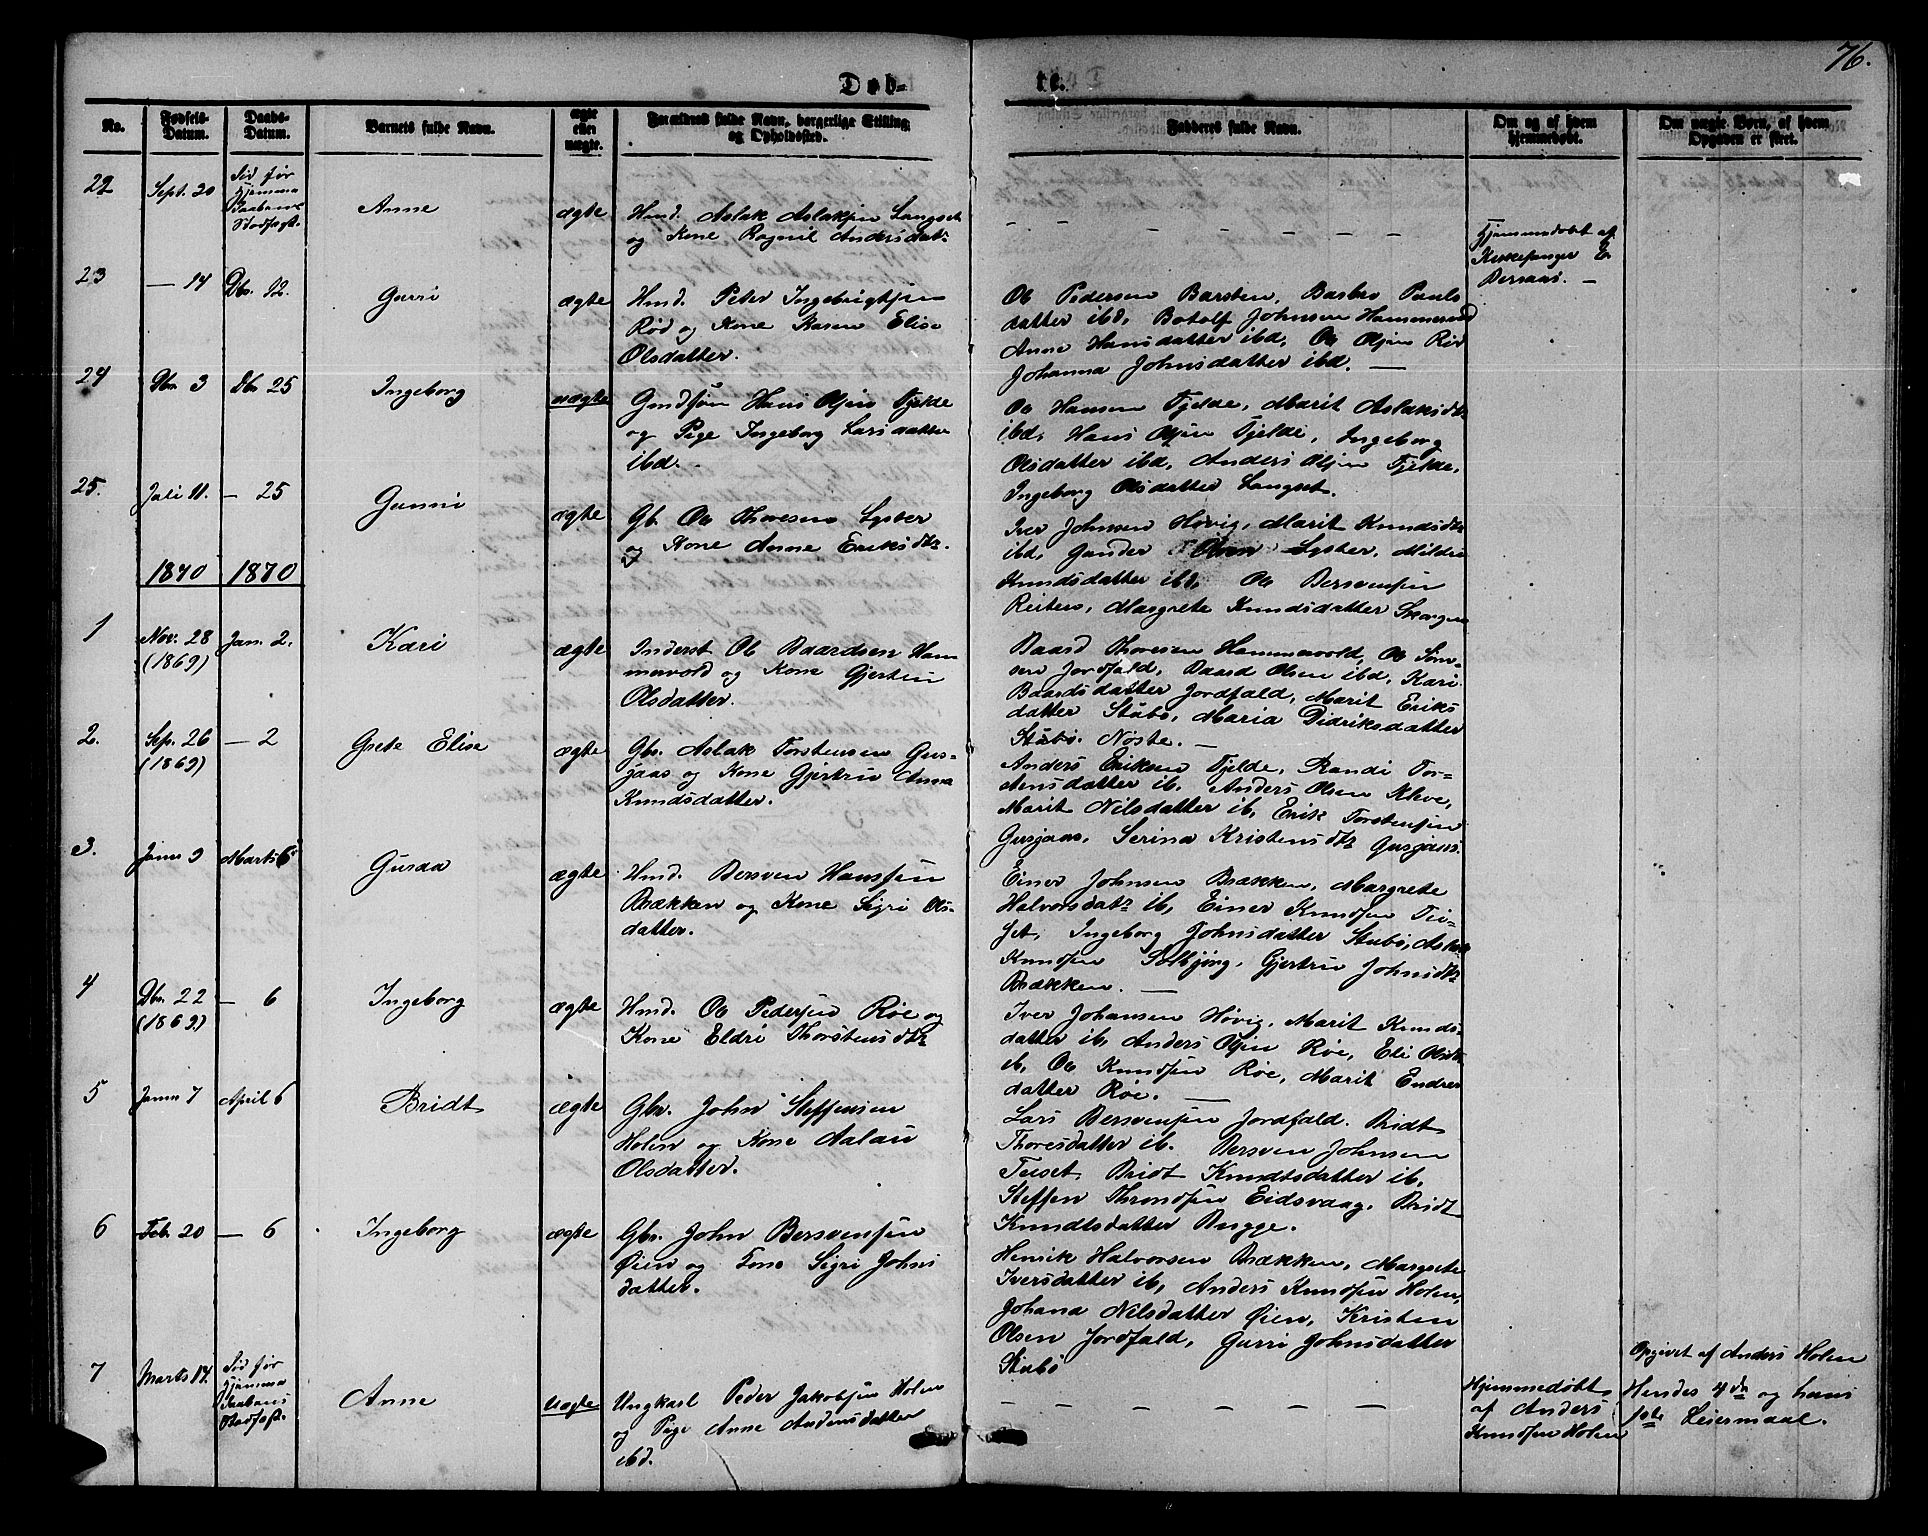 76.
Døb-
te.
No.
Fødsels-
Datum.
Daabs-
Datum.
Barnets fulde Navn.
ægte
eller
uægte.
Forældres fulde Navn, borgerlige Stilling
og Opholdssted.
Fadderes fulde Navn.
Om og af hvem
hjemmedøbt.
Om uægte Børn, af hvem
Opgaven er skeet.
22
Sept. 20
Død før
hjemme
Daabens
Stadfæst.
Anne
ægte
Hmd. Aslak Aslaksen Langset
og Kone Ragnil Andersdatr
Hjemmedøbt af
Kirkesanger E
Bersaas. —
23
— 14
Dbr. 12.
Gurri
ægte
Hmd. Peter Ingebrigtsen
Rød og Kone Karen Elise
Olsdatter.
Ole Pedersen Barsten, Barbro Pauls
datter ibd, Botolf Johnsen Hammervold
Anne Hansdatter ibd, Ole Olsen Rød
Johanna Johnsdatter ibd. —
24
3
Dbr 25
Ingeborg
uægte
Gmdsøn Hans Olsen Fjelde
og Pige Ingeborg Larsdatter
ibd.
Ole Hansen Fjelde, Marit Aslaksdtr
ibd, Hans Olsen Fjelde, Ingeborg
Olsdatter ibd, Anders Olsen Fjelde,
Ingeborg Olsdatter Langset.
25.
Juli 11.
— 25
Gunni
ægte
Gb. Ole Thoresen Lyster
og Kone Anne Eriksdtr.
Iver Johnsen Høvig, Marit Knudsdtr
ibd, Gunder Olsen Lyster, Mildri
Knudsdatter ibd, Ole Bersvensen
Reiten, Margrete Knudsdatter Skorgen
1870
1870
1
Nov. 28
(1869)
Jan. 2.
Kari
ægte
Inderst Ole Baardsen Ham-
mervold og Kone Gjertru
Olsdatter.
Baard Thoresen Hammervold, Ole Sim-
sen Jordfald, Baard Olsen ibd, Kari
Baardsdatter Jordfald, Marit Eriks
datter Stubø, Maria Didriksdatter
Stubø. Nøste. —
2.
Sep. 26
(1869)
— 2
Grete Elise
ægte
Gbr. Aslak Torstensen Gus-
jaas og Kone Gjertru Anna
Knudsdatter.
Anders Eriksen Fjelde, Randi Tor-
stensdatter ib. Anders Olsen Kleve,
Marit Nilsdatter ib, Erik Torstensen
Gusjaas, Serina Kristensdtr Gusjaas.
3.
Janr 9
Marts 6
Guraa
ægte
Hmd. Bersven Hanssen
Brækken og Kone Sigri Ols-
datter.
Einer Johnsen Brækken, Margrete
Halvorsdatr ib, Einer Knudsen Tei-
set, Ingeborg Johnsdatter Stubø, Aslak
Knudsen Solbjørg, Gjertru Johnsdtr
Brækken. —
4
Dbr. 22
(1869)
— 6
Ingeborg
ægte
Hmd. Ole Pedersen Røe og
Kone Eldri Thorstensdtr
Iver Johansen Høvig, Marit Knuds-
datter ib, Anders Olsen Røe, Eli Olsdtr
ib, Ole Knudsen Røe, Marit Endres
datter Røe. —
5
Janr 7
April 6
Bridt
ægte
Gbr. John Steffensen
Holen og Kone Aalau
Olsdatter.
Lars Bersvensen Jordfald. Bridt
Thoresdatter ib. Bersven Johnsen
Teiset, Bridt Knudtsdatter ib,
Steffen Throndsen Eidsvaag, Bridt
Knudtsdatter Bugge.
6
Feb. 20
— 6
Ingeborg
ægte
Gbr. John Bersvensen
Øien og Kone Sigri Johns
datter.
Henrik Halvorsen Brækken, Margrete
Iversdatter ib, Anders Knudsen Holen,
Johana Nilsdatter Øien, Kristen
Olsen Jordfald, Gurri Johnsdatter
Stubø
7
Marts 14.
Død før
hjemme
Daabens
Stadfæst.
Anne
uægte
Ungkarl Peder Jakobsen Holen
og Pige Anne Andersdatter
ibd.
Hjemmedøbt
af Anders
Knudsen Holen
Opgivet af Anders Holen
Hendes 4de og hans
1ste Leiermaal.